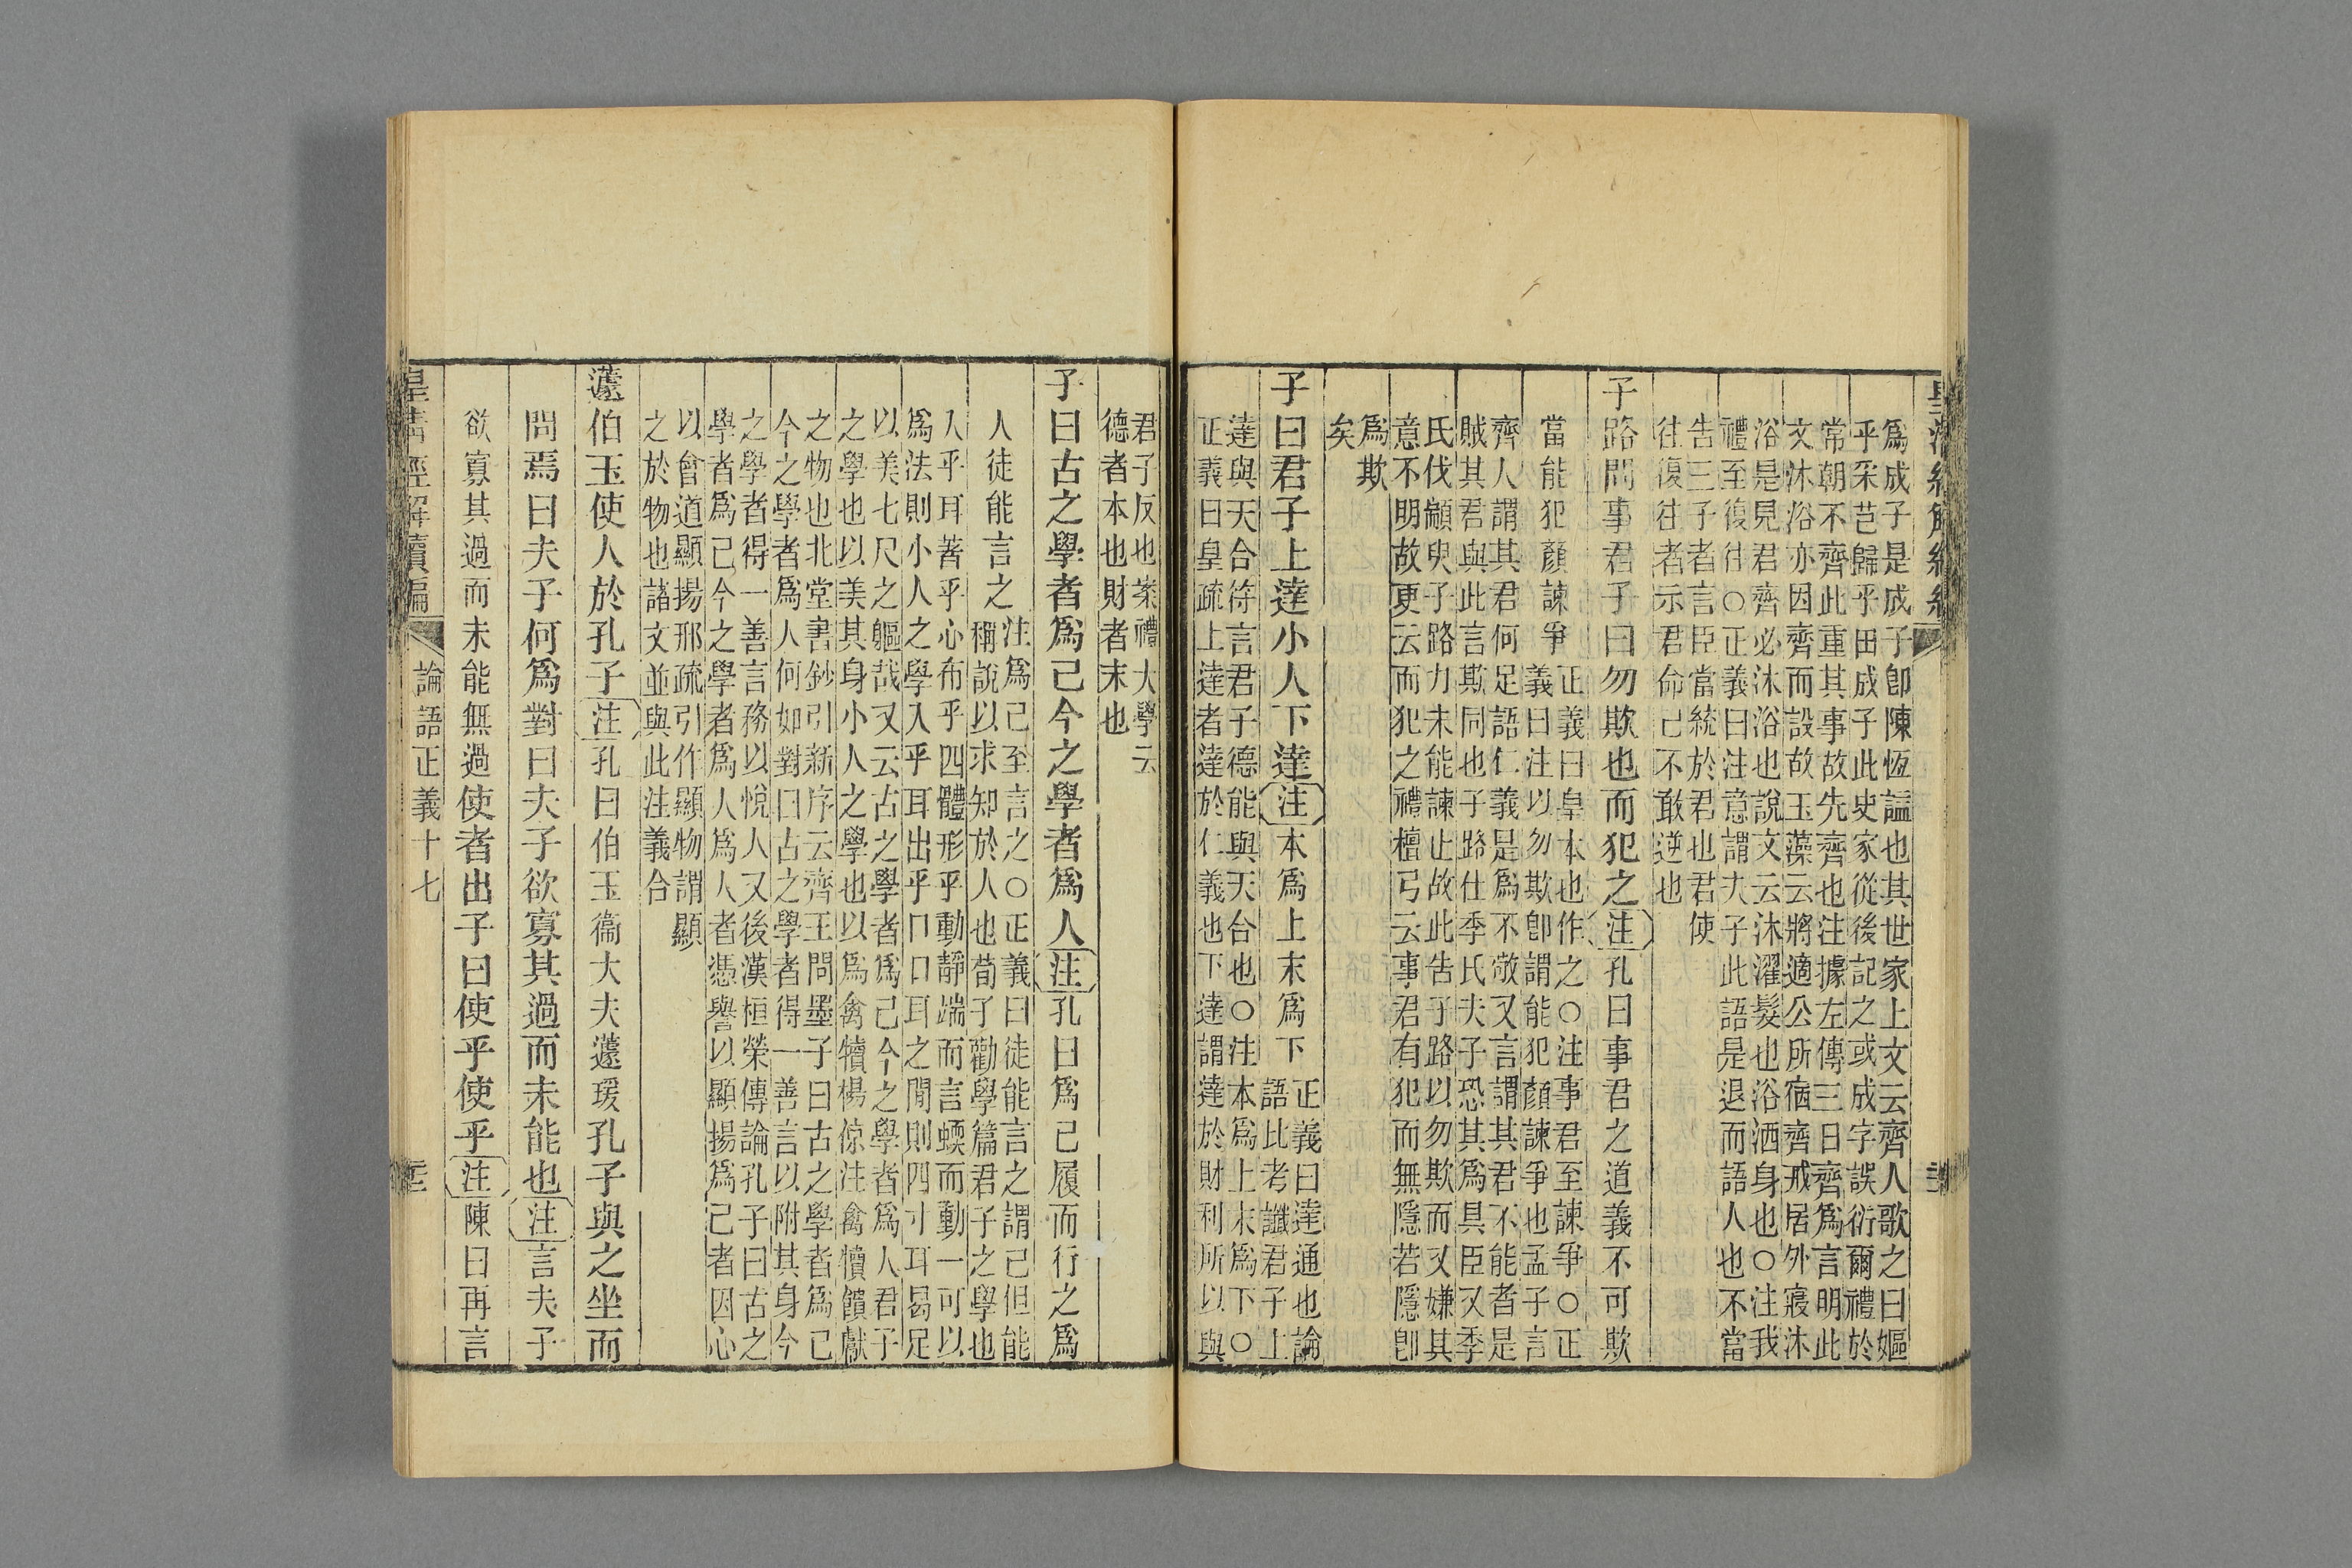 爲成子是成子卽陳恆諡也其世家上文云齊人歌之曰嫗
乎采芑歸乎田成子此史家從後記之或成字誤衍爾禮於
常朝不齊此重其事故先齊也注據左傳三日齊爲言明此
文沐浴亦因齊而設故玉藻云將適公所宿齊戒居外寢沐
浴是見君齊必沐浴也說文云沐濯髮也浴洒身也○注我
禮至復往○正義曰注意謂夫子此語是退而語人也不當
告三子者言臣當統於君也君使
往復往者示君命己不敢逆也
子路問事君子曰勿欺也而犯之注孔曰事君之道義不可欺
當能犯顏諫爭
正義曰皇本也作之○注事君至諫爭○正
義曰注以勿欺卽謂能犯顏諫爭也孟子言
齊人謂其君何足語仁義是爲不敬又言謂其君不能者是
賊其君與此言欺同也子路仕季氏夫子恐其爲具臣又季
氏伐顓臾子路力未能諫止故此告子路以勿欺而又嫌其
意不明故更云而犯之禮檀弓云事君有犯而無隱若隱卽
爲欺
矣
子曰君子上達小人下達注本爲上末爲下
正義曰達通也論
語比考讖君子上
達與天合符言君子德能與天合也○注本爲上末爲下○
正義曰皇疏上達者達於仁義也下達謂達於財利所以與
君子反也案禮大學云
德者本也財者末也
子曰古之學者爲己今之學者爲人注孔曰爲己履而行之爲
人徒能言之
注爲己至言之○正義曰徒能言之謂己但能
稱說以求知於人也荀子勸學篇君子之學也
入乎耳著乎心布乎四體形乎動靜端而言蝡而動一可以
爲法則小人之學入乎耳出乎口口耳之閒則四寸耳曷足
以美七尺之軀哉又云古之學者爲己今之學者爲人君子
之學也以美其身小人之學也以爲禽犢楊倞注禽犢饋獻
之物也北堂書鈔引新序云齊王問墨子曰古之學者爲己
今之學者爲人何如對曰古之學者得一善言以附其身今
之學者得一善言務以悅人又後漢桓榮傳論孔子曰古之
學者爲己今之學者爲人爲人者憑譽以顯揚爲己者因心
以會道顯揚邢疏引作顯物謂顯
之於物也諸文並與此注義合
蘧伯玉使人於孔子注孔曰伯玉衞大夫蘧瑗孔子與之坐而
問焉曰夫子何爲對曰夫子欲寡其過而未能也注言夫子
欲寡其過而未能無過使者出子曰使乎使乎注陳曰再言
皇清經解續編
論語正義十七